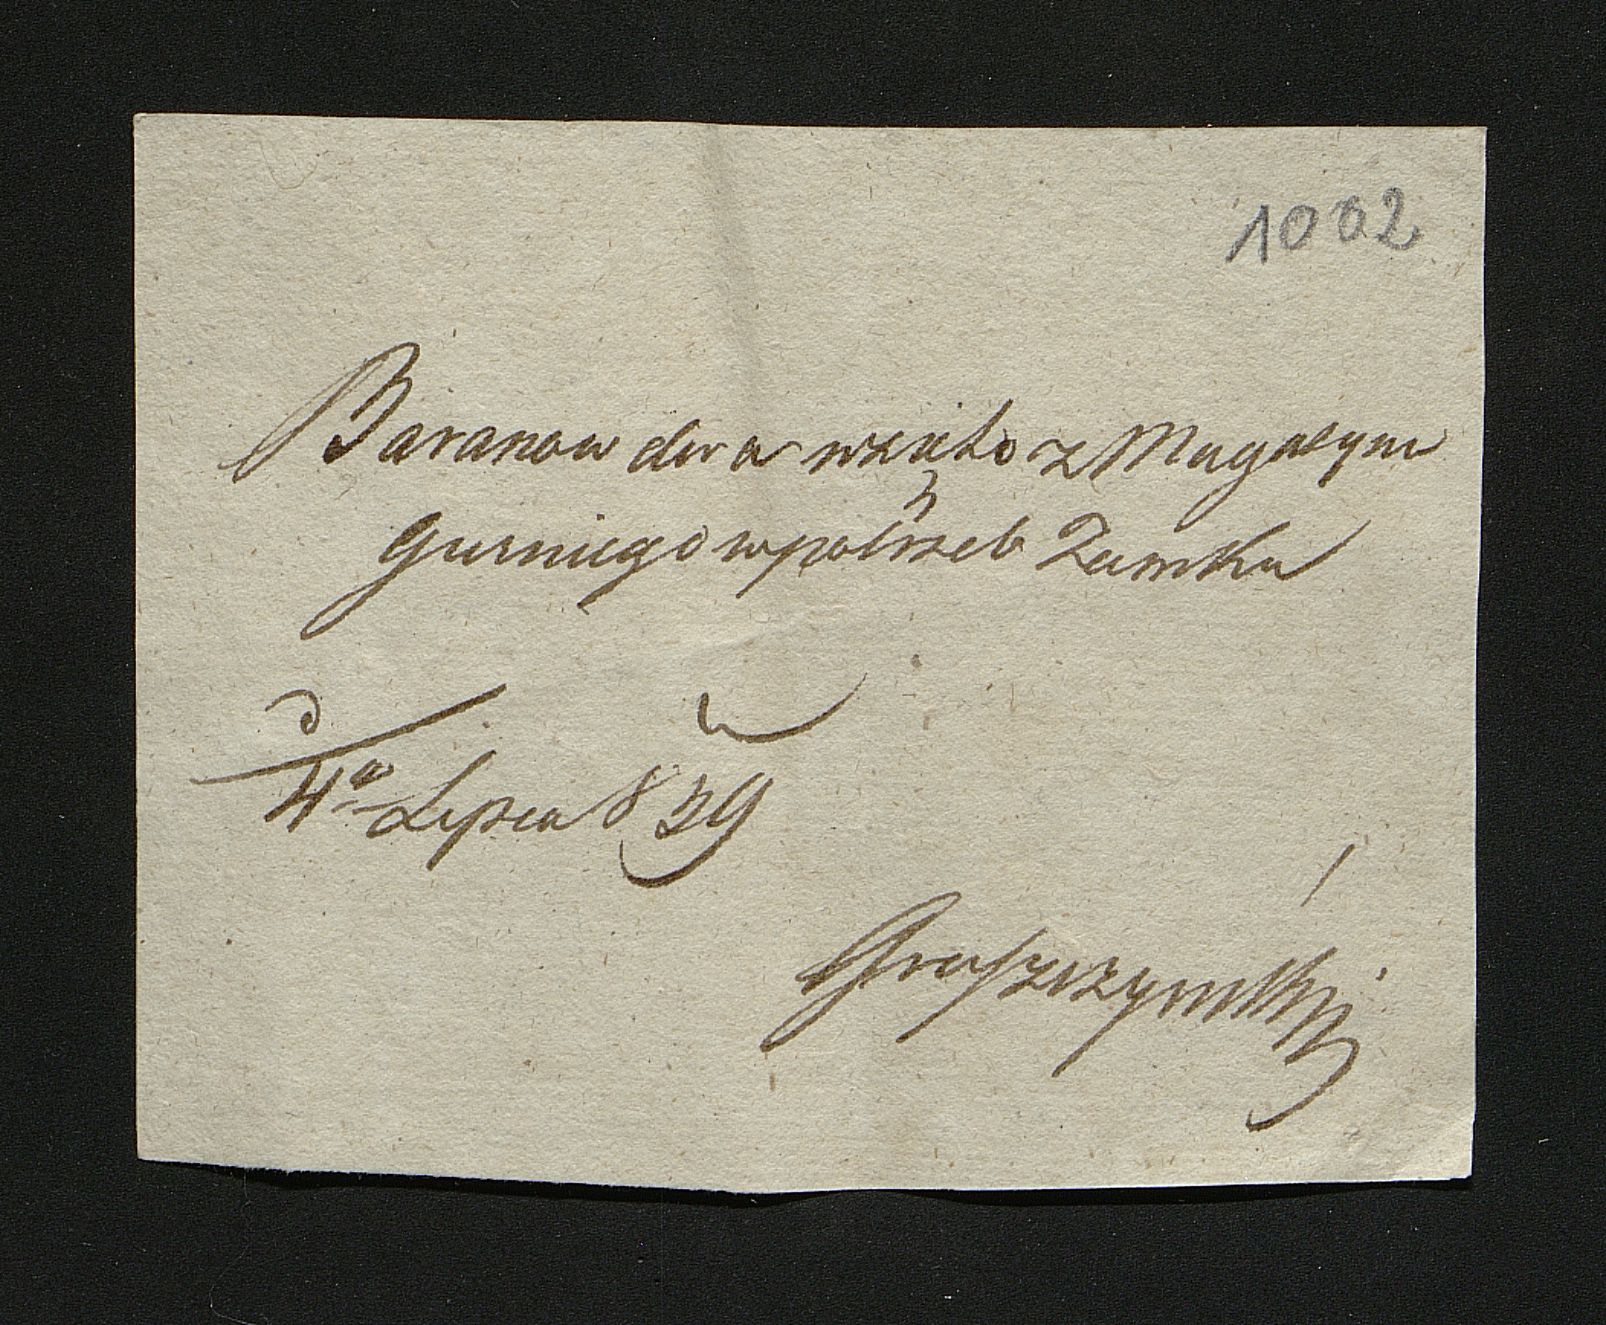 1002
Baranow dwa wzięto z Magazyn
Gurniego w potrzeb Zamku
d
4º Lipca 839
Gruszczyński